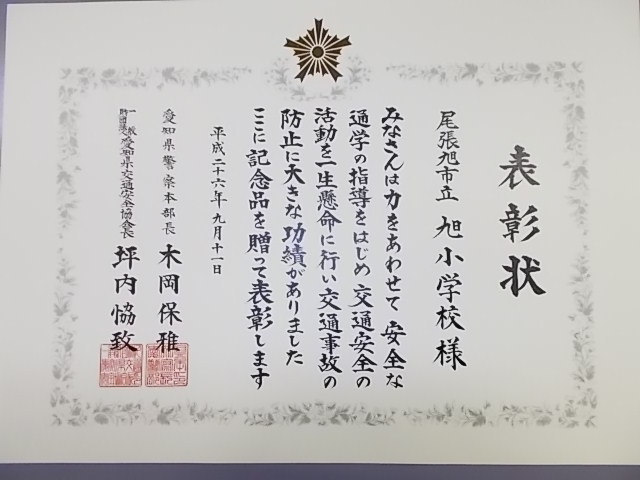 表彰状
尾張旭市立 旭小学校様
みなさんは力をあわせて 安全な
通学の指導をはじめ 交通安全の
活動を一生懸命に行い 交通事故の
防止に大きな功績がありました
ここに記念品を贈って表彰します
平成二十六年九月十一日
愛知県警察本部長 木岡保雅
一般財団法人 愛知県交通安全協会長 坪内恊致